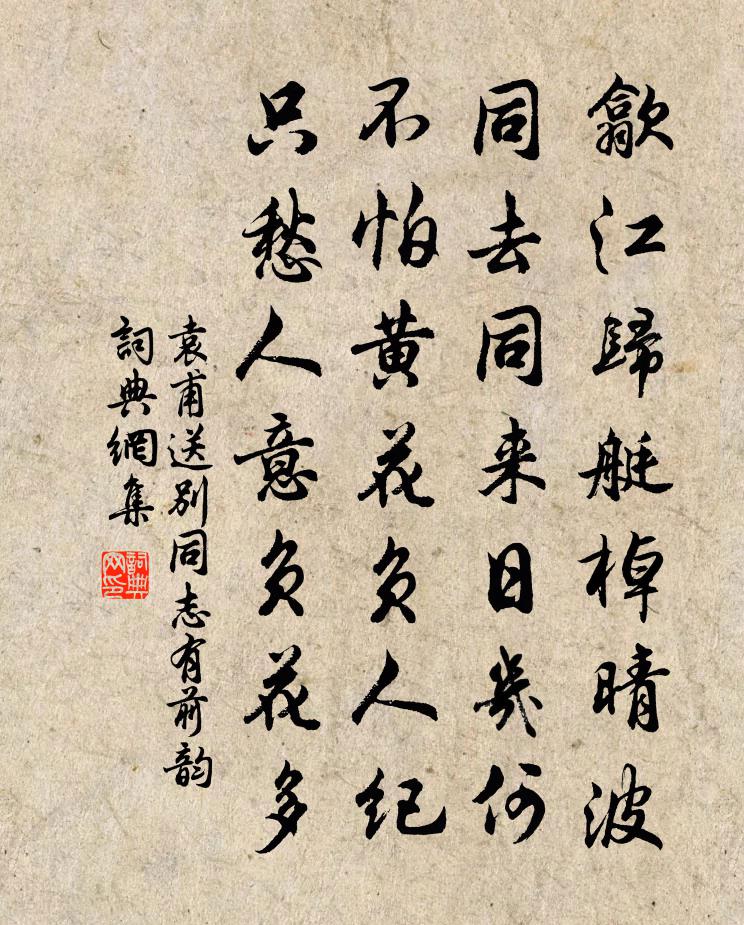 歙江歸艇棹晴波
同去同来日幾何
不怕黄花负人纪
只愁人意负花多
袁甫送别同志有前韵
詞典網集
詞典网印